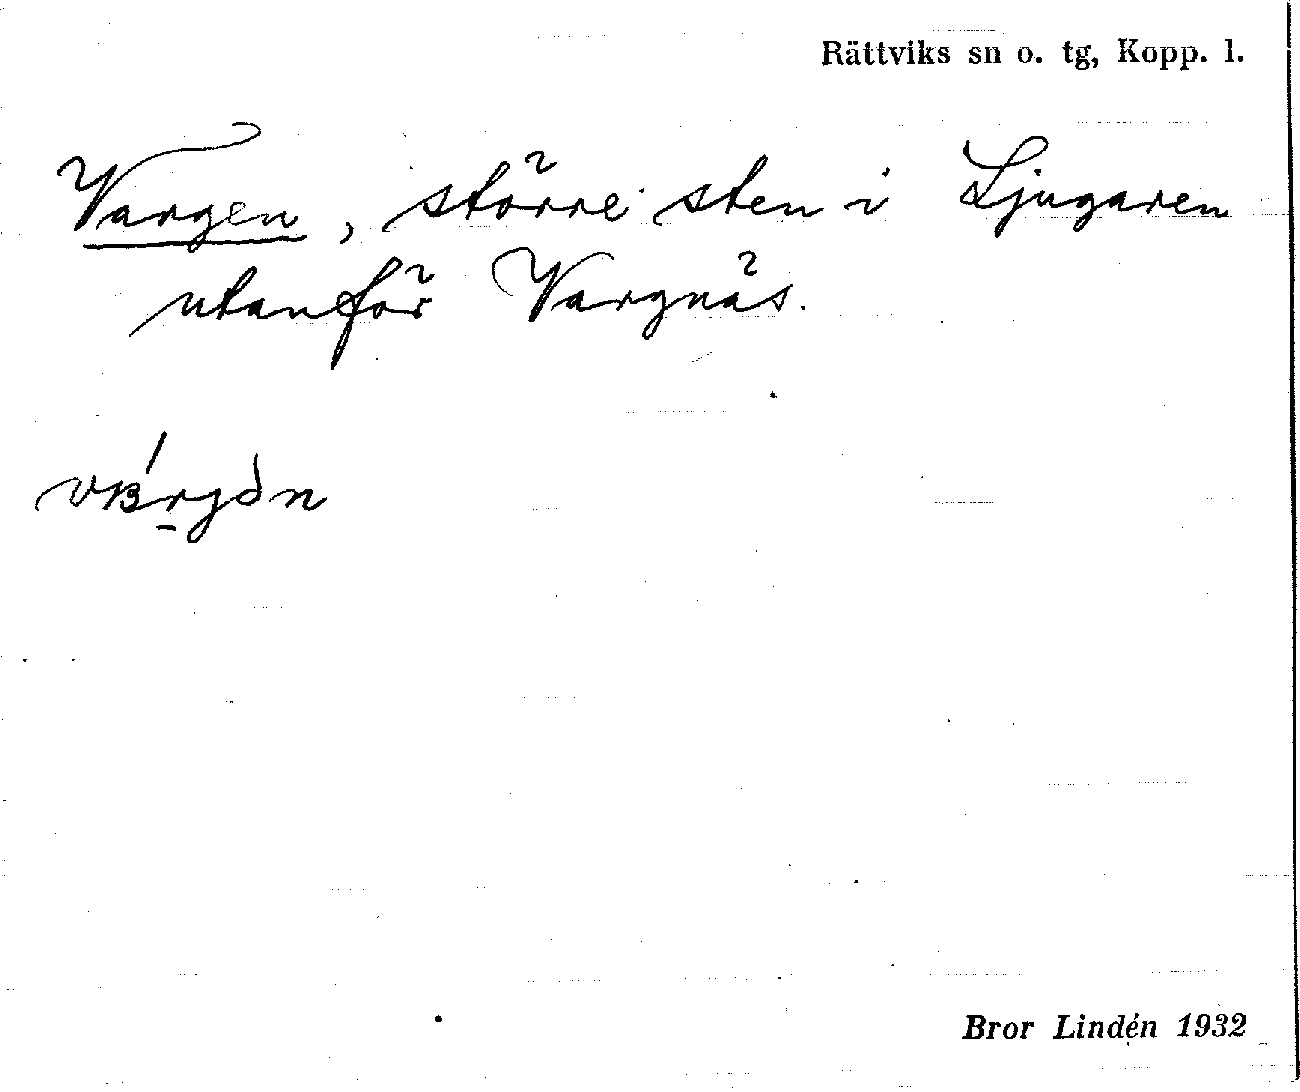 Rättviks sn o. tg, Kopp. l.
Vargen, större sten i Ljugaren
utanför Vargnäs.
Bror Lindén 1932